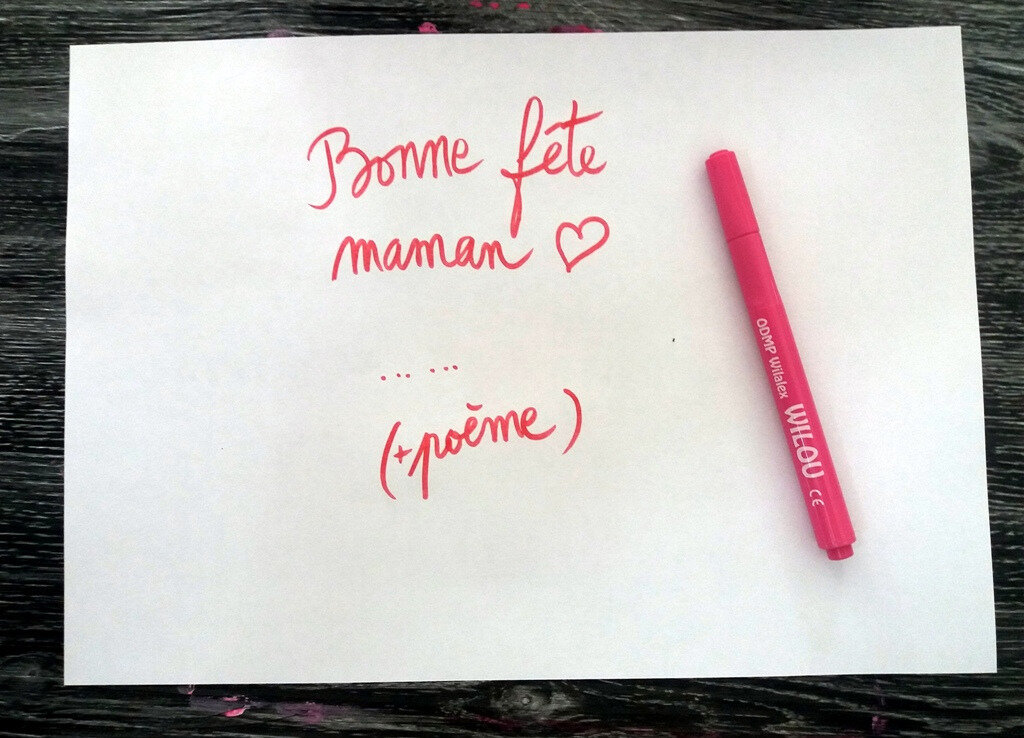 Bonne fête
maman ♡
... ...
(+poème)
ODMP Wilalex WILOU CE